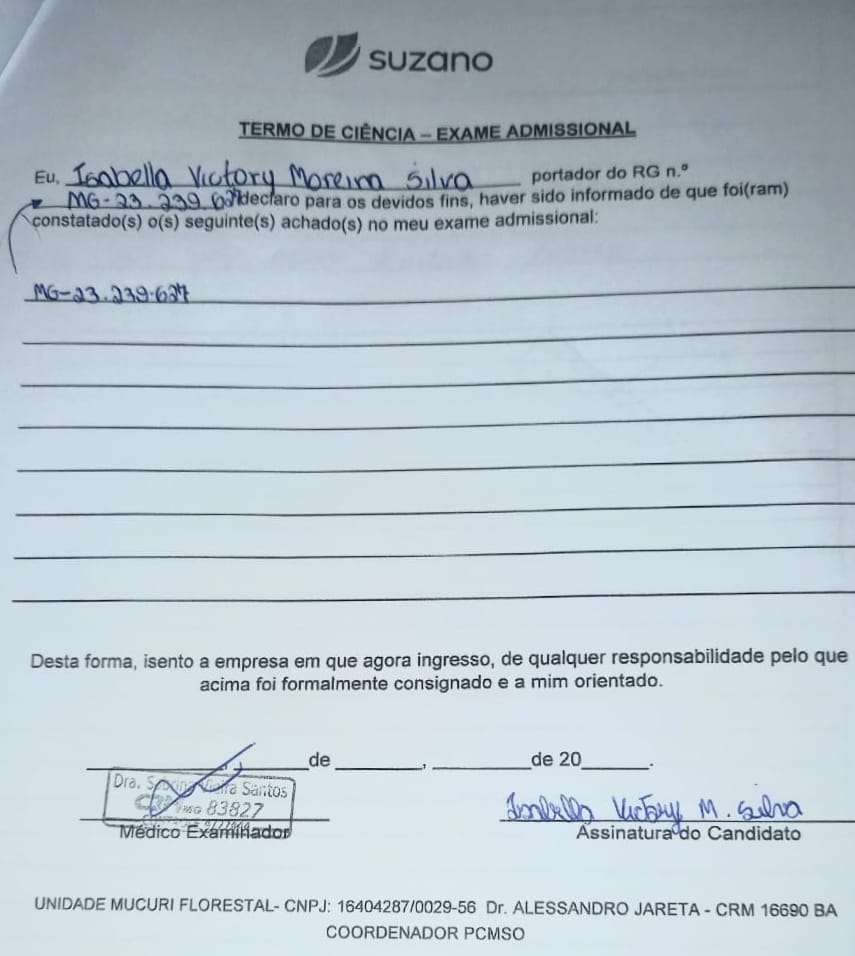 suzano
TERMO DE CIÊNCIA – EXAME ADMISSIONAL
Eu, Isabella Victory Moreira Silva portador do RG n.º
MG-23.239.627 declaro para os devidos fins, haver sido informado de que foi(ram)
constatado(s) o(s) seguinte(s) achado(s) no meu exame admissional:
MG-23.239.627
Desta forma, isento a empresa em que agora ingresso, de qualquer responsabilidade pelo que
acima foi formalmente consignado e a mim orientado.
de , de 20 .
Dra. Vieira Santos
MG 83827
Médico Examinador
Isabella Victory M. Silva
Assinatura do Candidato
UNIDADE MUCURI FLORESTAL- CNPJ: 16404287/0029-56 Dr. ALESSANDRO JARETA - CRM 16690 BA
COORDENADOR PCMSO